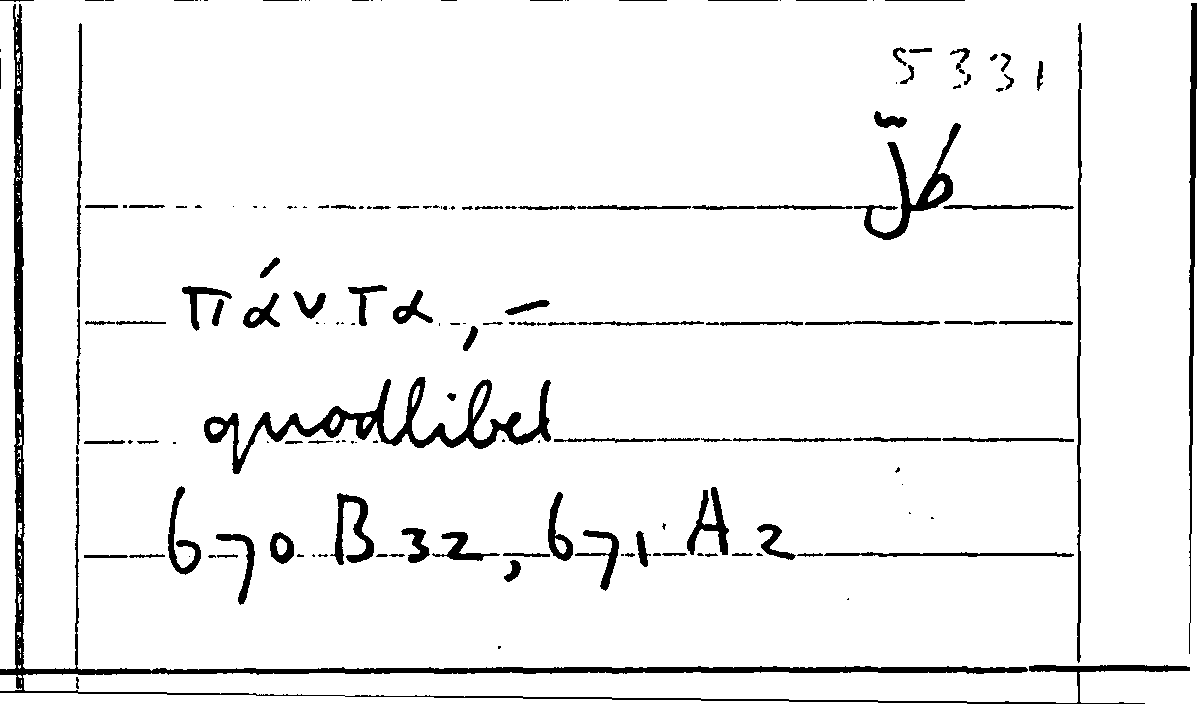 5331
πάντα, –
quodlibet
670 B 32, 671 A 2